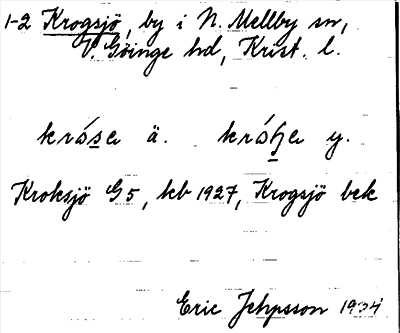 1-2 Krogsjö, by i N. Mellby sn,
V. Göinge hd, Krist. l.
Kroksjö G5, kb 1927, Krogsjö bek
Eric Jehpsson 1934